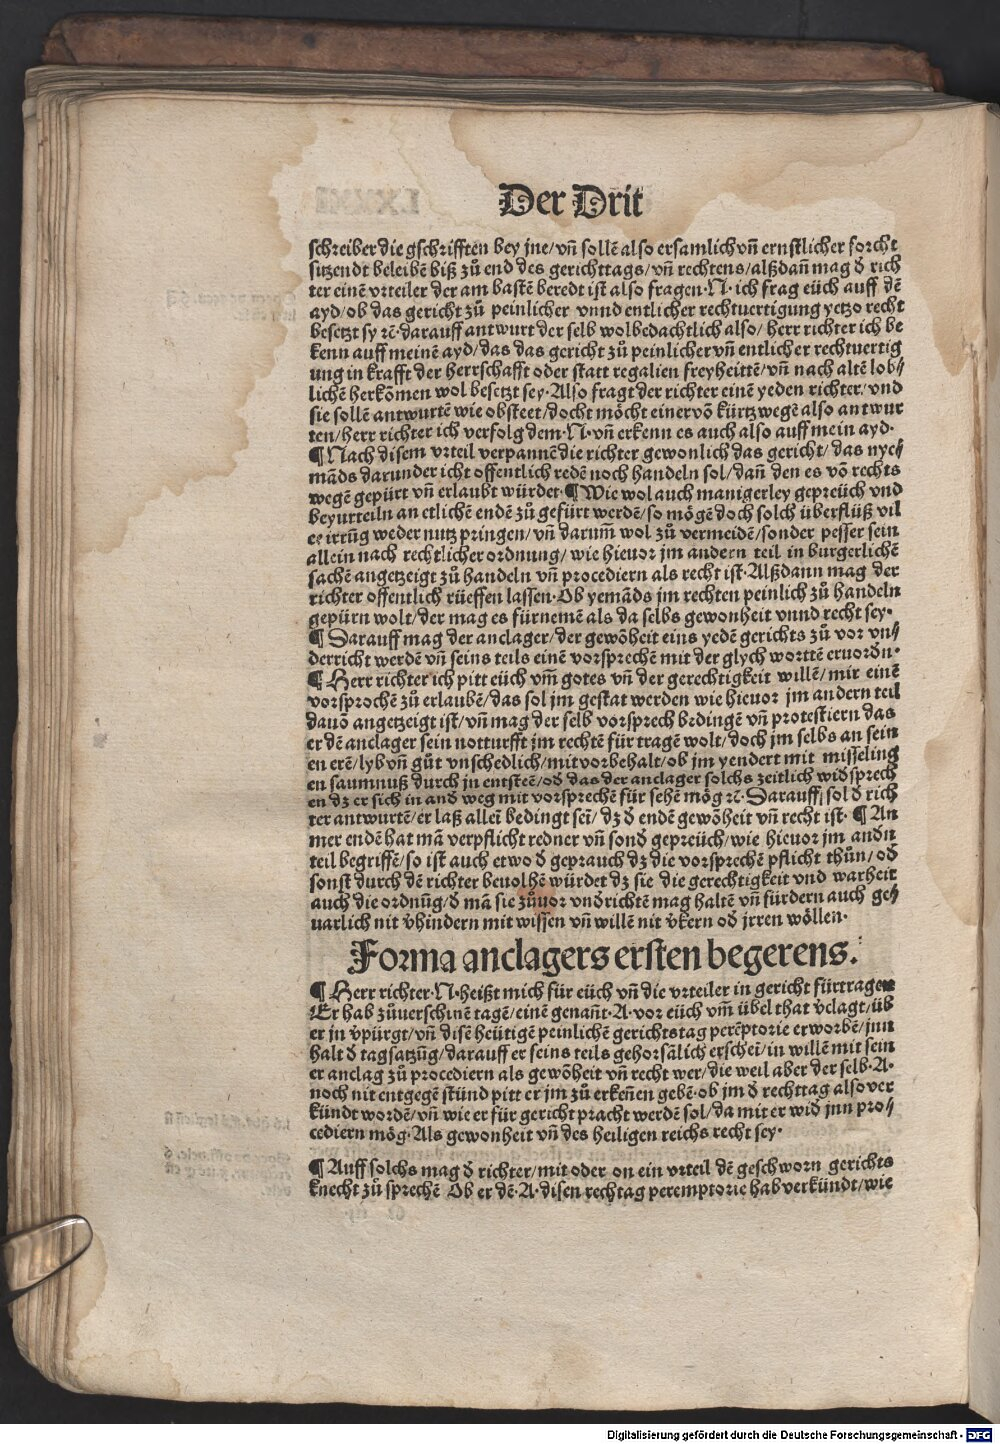 Der Drit
schreiber die gschrifften bey jne/ vñ sollẽ also ersamlich vñ ernstlicher forcht
sitzendt beleibẽ biß zů end des gerichttags/ vñ rechtens/ alßdañ mag d̕ rich
ter einẽ vrteiler der am bastẽ beredt ist also fragen· N· ich frag eüch auff dẽ
ayd/ ob das gericht zů peinlicher vnnd entlicher rechtuertigung yetzo recht
besetzt sy ⁊c̃· darauff antwurt der selb wolbedachtlich also/ herr richter ich be
kenn auff meinẽ ayd/ das das gericht zů peinlicher vñ entlicher rechtuertig
ung in krafft der herrschafft oder statt regalien freyheittẽ/ vñ nach altẽ lob⸗
lichẽ herkõmen wol besetzt sey· Also fragt der richter einẽ yeden richter/ vnd
sie sollẽ antwurtẽ wie obsteet/ docht möcht einer võ kürtz wegẽ also antwur
ten/ herr richter ich verfolg dem· N· vñ erkenn es auch also auff mein ayd·
¶ Nach disem vrteil verpannẽ die richter gewonlich das gericht/ das nye⸗
mãds darunder icht offentlich redẽ noch handeln sol/ dañ den es võ rechts
wegẽ gepürt vñ erlaubt würdet· ¶ Wie wol auch manigerley gepreüch vnd
beyurteiln an etlichẽ endẽ zů gefürt werdẽ/ so mögẽ doch solch überflüß vil
er irrũg weder nutz pringen/ vñ darum̃ wol zů vermeidẽ/ sonder pesser sein
allein nach rechtlicher ordnung/ wie hieuor jm andern teil in burgerlichẽ
sachẽ angetzeigt zů handeln vñ procediern als recht ist· Alßdann mag der
richter offentlich rüeffen lassen· Ob yemãds jm rechten peinlich zů handeln
gepürn wolt/ der mag es fürnemẽ als da selbs gewonheit vnnd recht sey·
¶ Darauff mag der anclager/ der gewõheit eins yedẽ gerichts zů vor vn⸗
derricht werdẽ vñ seins teils einẽ vorsprechẽ mit der glych worttẽ eruordn·
¶ Herr richter ich pitt eüch vm̃ gotes vñ der gerechtigkeit willẽ/ mir einẽ
vorsprochẽ zů erlaubẽ/ das sol jm gestat werden wie hieuor jm andern teil
dauõ angetzeigt ist/ vñ mag der selb vorsprech bedingẽ vñ protestiern das
er dẽ anclager sein notturfft jm rechtẽ für tragẽ wolt/ doch jm selbs an sein
en erẽ/ lyb vñ gůt vnschedlich/ mit vorbehalt/ ob jm yendert mit misseling
en saumnuß durch jn entsteẽ/ od̕ das der anclager solchs zeitlich wid̕sprech
en dz er sich in and̕ weg mit vorsprechẽ für sehẽ mög ⁊c̃· Darauff sol d̕ rich
ter antwurtẽ/ er laß alleĩ bedingt seĩ/ dz d̕ endẽ gewõheit vñ recht ist· ¶ An
mer endẽ hat mã verpflicht redner vñ sond̕ gepreüch/ wie hieuor jm andn̄
teil begriffẽ/ so ist auch etwo d̕ geprauch dz die vorsprechẽ pflicht thůn/ od̕
sonst durch dẽ richter beuolhẽ würdet dz sie die gerechtigkeit vnd warheit
auch die ordnũg/ d̕ mã sie zůuor vnd̕richtẽ mag haltẽ vñ fürdern auch ge⸗
uarlich nit v̕hindern mit wissen vñ willẽ nit v̕kern od̕ jrren wöllen·
Forma anclagers ersten begerens.
¶ Herr richter· N· heißt mich für eüch vñ die vrteiler in gericht fürtragen
Er hab zůuerschinẽ tagẽ/ einẽ genañt· A· vor eüch vm̃ übel that v̕clagt/ üb
er jn v̕pürgt/ vñ disẽ heütigẽ peinlichẽ gerichtstag perẽptorie erworbẽ/ jnn
halt d̕ tagsatzũg/ darauff er seins teils gehorsãlich erscheĩ/ in willẽ mit sein
er anclag zů procediern als gewõheit vñ recht wer/ die weil aber der selb· A·
noch nit entgegẽ stünd pitt er jm zů erkeñen gebẽ· ob jm d̕ rechttag also ver
kündt wordẽ/ vñ wie er für gericht pracht werdẽ sol/ da mit er wid̕ jnn pro⸗
cediern mög· Als gewonheit vñ des heiligen reichs recht sey·
¶ Auff solchs mag d̕ richter/ mit oder on ein vrteil dẽ geschworn gerichts
knecht zů sprechẽ Ob er dẽ· A· disen rechtag peremptorie hab verkündt/ wie
Digitalisierung gefördert durch die Deutsche Forschungsgemeinschaft - DFG